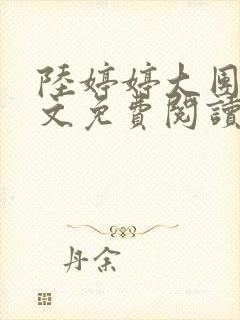 陸婷婷大團
文免費閱讀
丹余